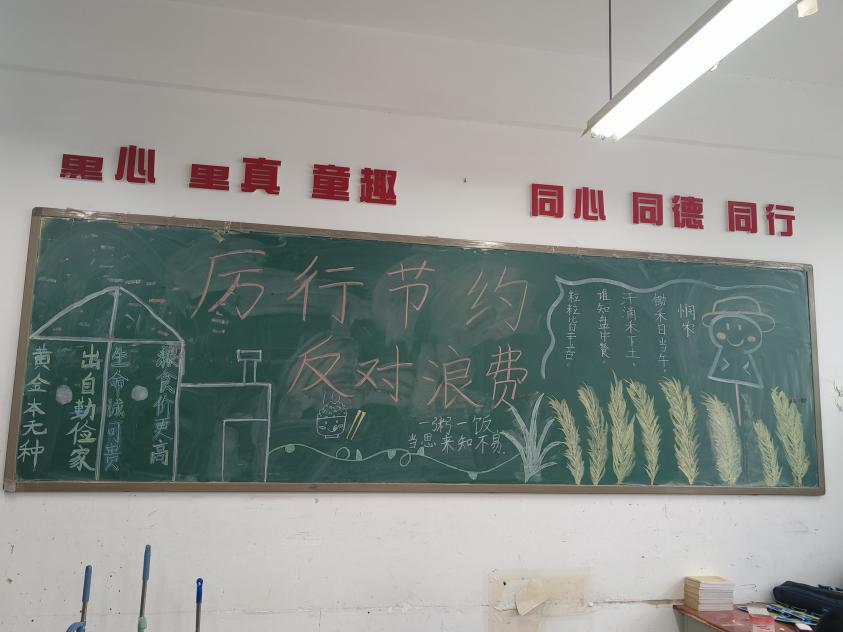 心 里真 童趣
同心 同德 同行
厉行节约
反对浪费
黄金本无种
出自勤俭家
生命诚可贵
粮食价更高
一粥一饭
当思来知不易
悯农
锄禾日当午,
汗滴禾下土。
谁知盘中餐,
粒粒皆辛苦。